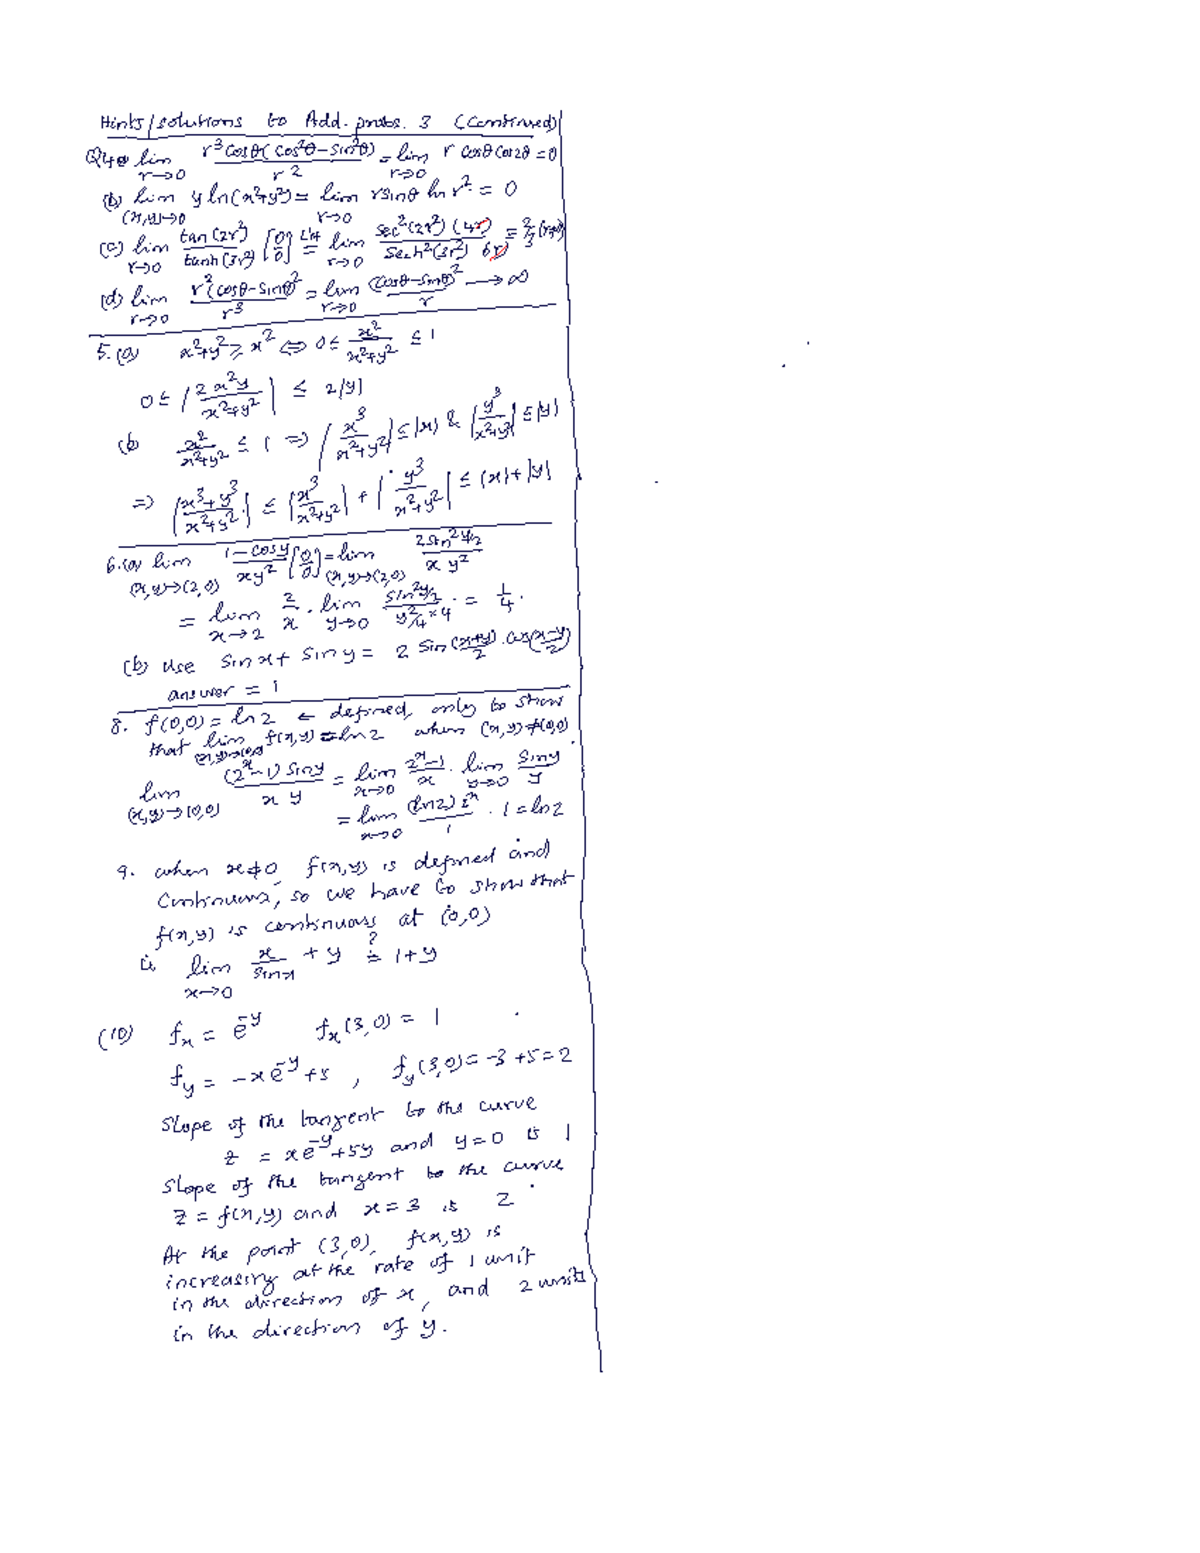 Hints/solutions to Add. probs. 3 (Continued)
Q4(a) lim r→0 r³cosθ(cos²θ-sin²θ)/r² = lim r→0 r cosθ cos2θ = 0
(b) lim (x,y)→0 y ln(x²+y²) = lim r→0 r sinθ ln r² = 0
(c) lim r→0 tan(2r²)/tanh(3r²) [0/0] L'H = lim r→0 sec²(2r²)(4r)/sech²(3r²) 6r = 2/3
(d) lim r→0 r²(cosθ-sinθ)²/r³ = lim r→0 (cosθ-sinθ)²/r → ∞
5.(a) x²+y² ≥ x² ⇔ 0 ≤ x²/x²+y² ≤ 1
0 ≤ |2x²y/x²+y²| ≤ 2|y|
(b) x²/x²+y² ≤ 1 ⇒ |x³/x²+y²| ≤ |x| & |y³/x²+y²| ≤ |y|
⇒ |x³+y³/x²+y²| ≤ |x³/x²+y²| + |y³/x²+y²| ≤ |x|+|y|
6.(a) lim (x,y)→(2,0) 1-cosy/xy² [0/0] = lim (x,y)→(2,0) 2sin²y/2/x y²
= lim x→2 2/x · lim y→0 sin²y/2/y²/4×4 = 1/4.
(b) Use sinx + siny = 2 sin(x+y)/2 · cos(x-y/2)
answer = 1
8. f(0,0) = ln2 ← defined, only to show
that lim (x,y)→(0,0) f(x,y) = ln2 when (x,y)≠(0,0)
lim (x,y)→(0,0) (2ˣ-1) siny/x y = lim x→0 2ˣ-1/x · lim y→0 siny/y
= lim x→0 (ln2)2ˣ/1 · 1 = ln2
9. when x≠0, f(x,y) is defined and
Continuous, so we have to show that
f(x,y) is continuous at (0,0)
ie lim x→0 x/sinx + y ≟ 1+y
(10) fₓ = e⁻ʸ fₓ(3,0) = 1
f_y = -xe⁻ʸ+5, f_y(3,0) = -3+5 = 2
Slope of the tangent to the curve
z = xe⁻ʸ+5y and y=0 is 1
Slope of the tangent to the curve
z = f(x,y) and x=3 is 2.
At the point (3,0), f(x,y) is
increasing at the rate of 1 unit
in the direction of x, and 2 units
in the direction of y.